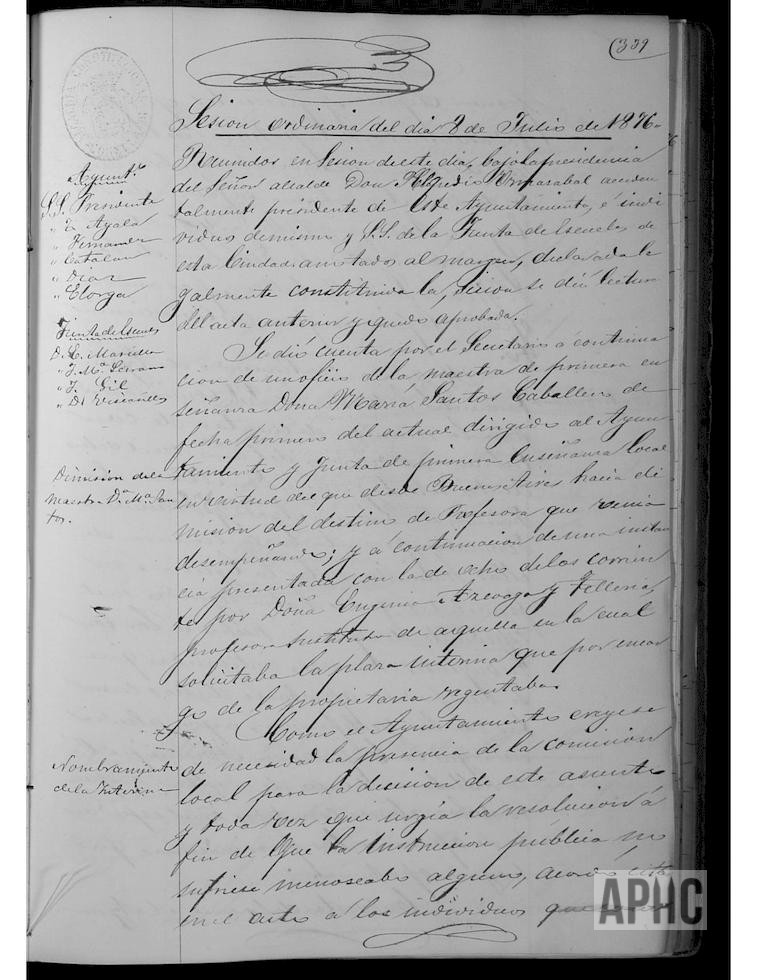 (339
Sesion ordinaria del dia 8 de Julio de 1876.
Reunidos en Sesion de este dia, bajo la presidencia
del Señor alcalde Don Olarabal acciden
talmente presidente de este Ayuntamiento, é indi
viduos del mismo y S.S. de la Junta de Escuelas de
esta Ciudad anotados al margen, declarada le
galmente constituida la sesion se dió lectura
del acta anterior y quedó aprobada.
Se dió cuenta por el Secretario a continua
cion de un oficio de la maestra de primera en
señanza Doña Mariá Santos Caballero de
fecha primero del actual dirigido al Ayun
tamiento y Junta de primera Enseñanza local
en virtud de que desde Buenos Aires hacia di
mision del destino de Profesora que venia
desempeñando; y á continuacion de una instan
cia presentada con la de ocho de los corrien
tes por Doña Eugenia y Telleria,
profesora sustituta de aquella en la cual
solicitaba la plaza interina que por encar
go de la propietaria regentaba.
Como el Ayuntamiento creyese
de necesidad la presencia de la comision
local para la decision de este asunto
y toda vez que urgia la resolucion á
fin de que la instruccion pública no
sufriese menoscabo alguno, acordó
en el acto a los individuos
Ayunt.º
S.S. Presidente
" Ayala
" Fernandez
" Catalan
" Diaz
" Elorga
Junta de Escuelas
D. L.
" J. Mª Serrano
" J. Gil
" D.
Dimision de la
maestra Dª Mª San
tos.
Nombramiento
de la Interina
APHC